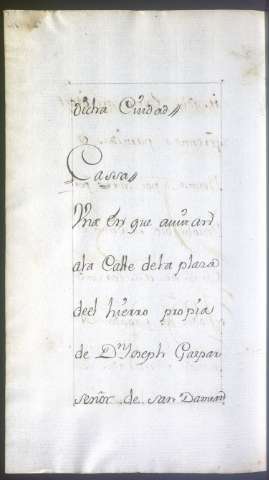 dicha Ciudad//
Cassa//
Vna En que
ala Calle dela plaza
deel hierro propia
de Dn Joseph Gaspar
señor de san Damian